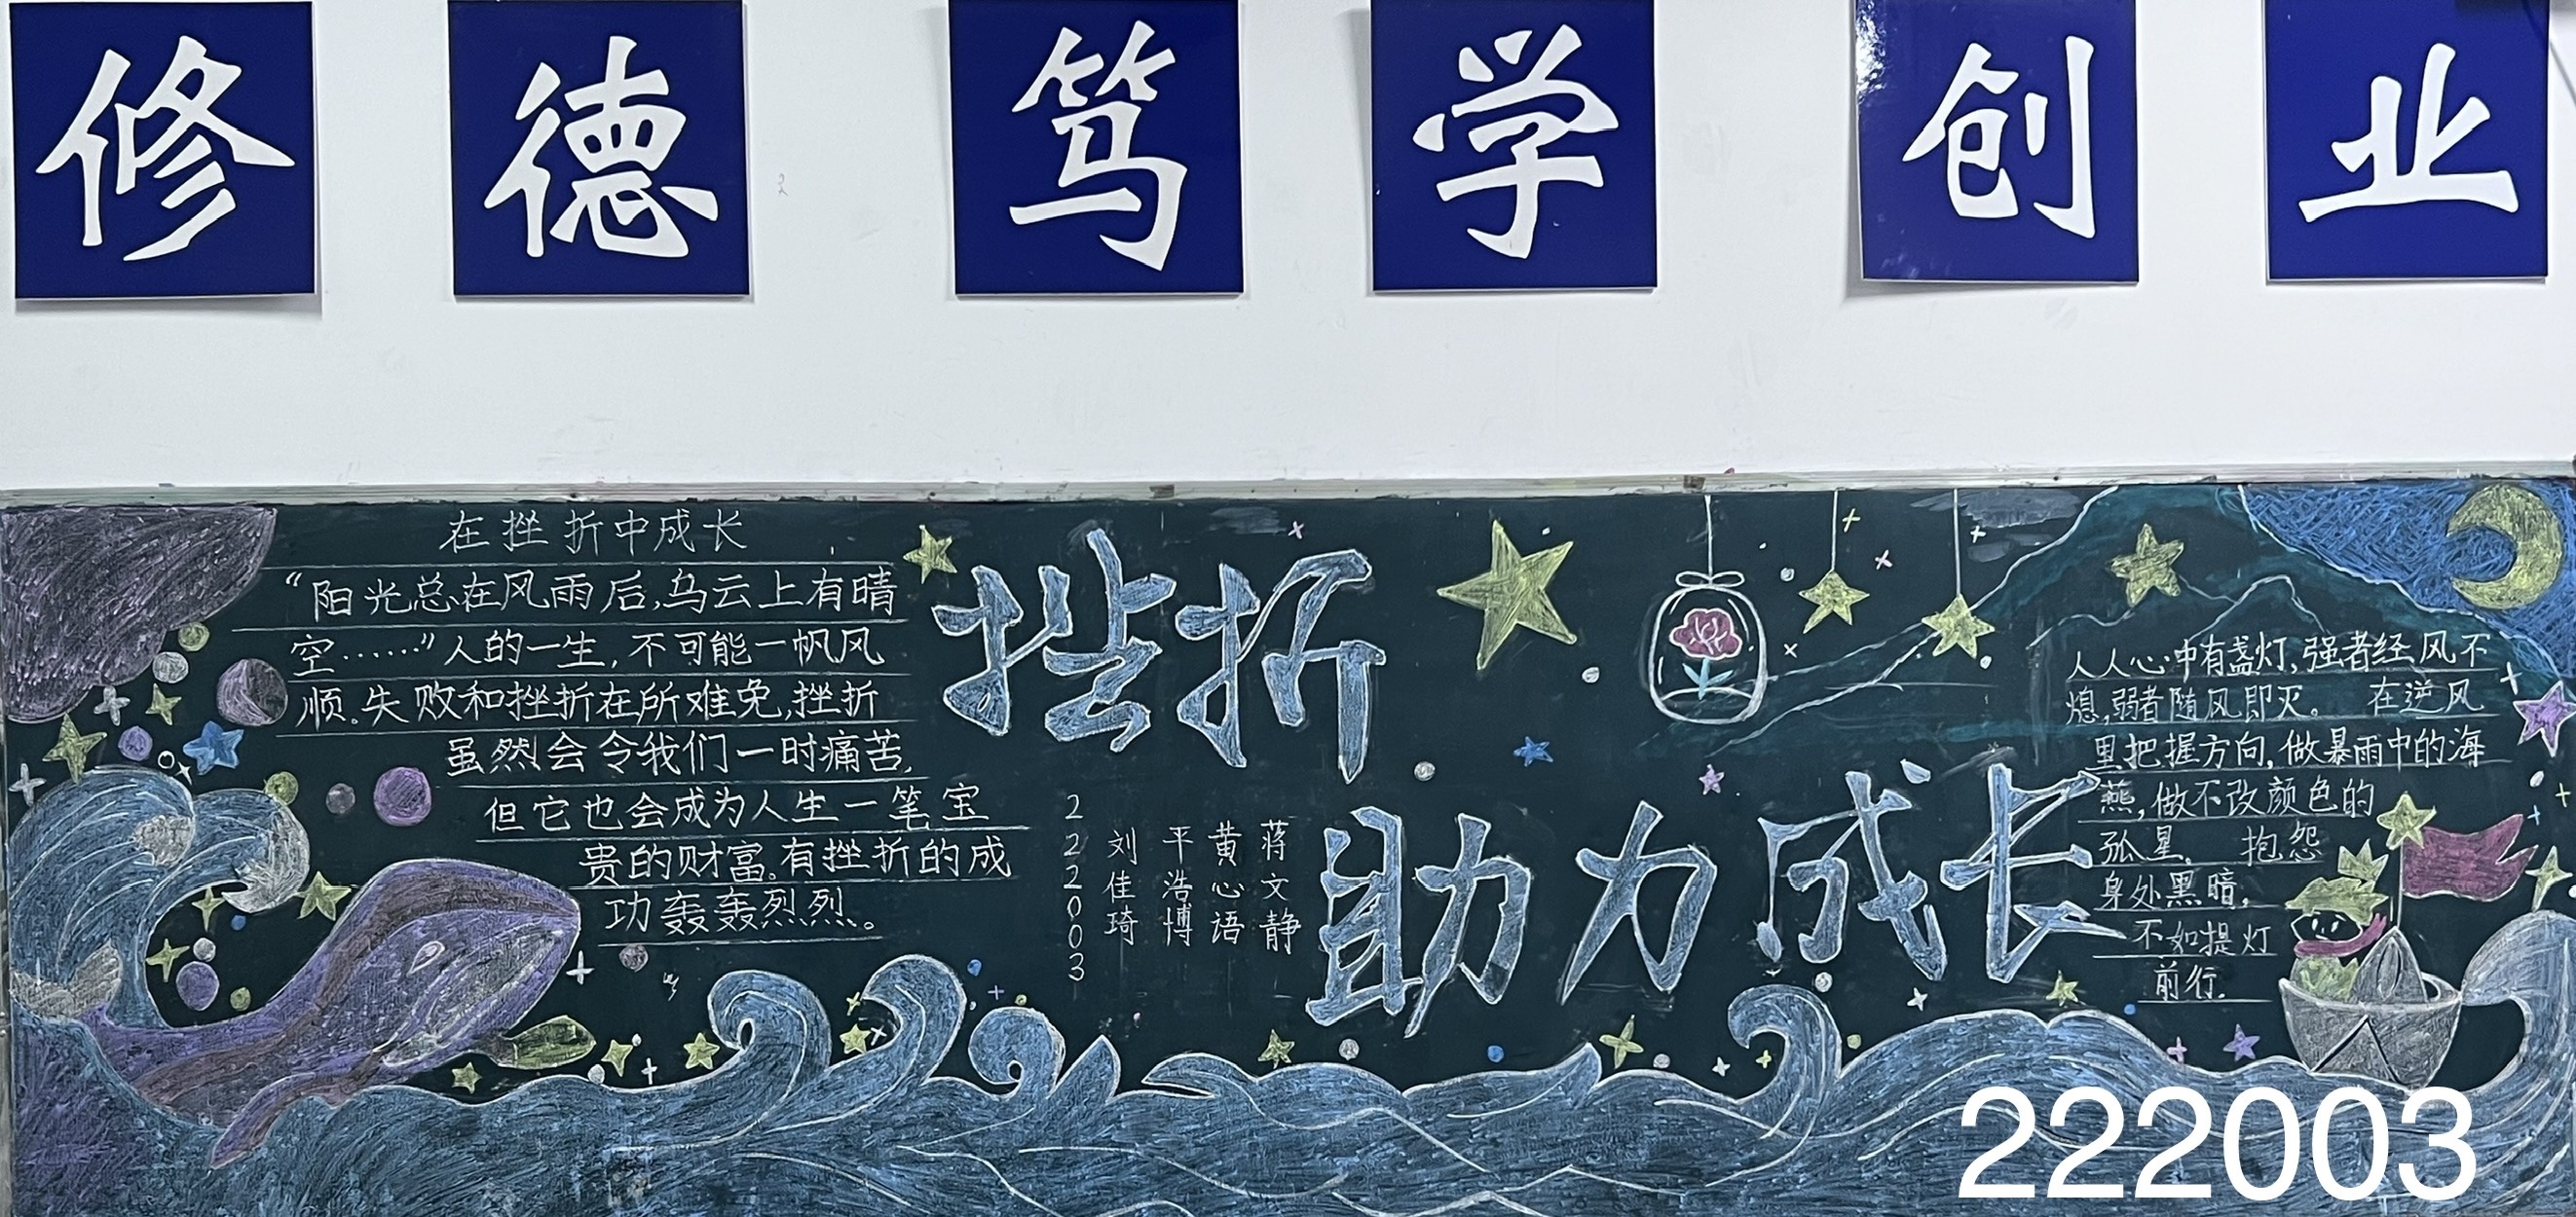 修德笃学创业
在挫折中成长
“阳光总在风雨后,乌云上有晴
空……”人的一生,不可能一帆风
顺。失败和挫折在所难免,挫折
虽然会令我们一时痛苦,
但它也会成为人生一笔宝
贵的财富。有挫折的成
功轰轰烈烈。
挫折
助力成长
222003
刘佳琦
平浩博
黄心语
蒋文静
人人心中有盏灯,强者经风不
熄,弱者随风即灭。 在逆风
里把握方向,做暴雨中的海
燕,做不改颜色的
孤星。 抱怨
身处黑暗,
不如提灯
前行.
222003